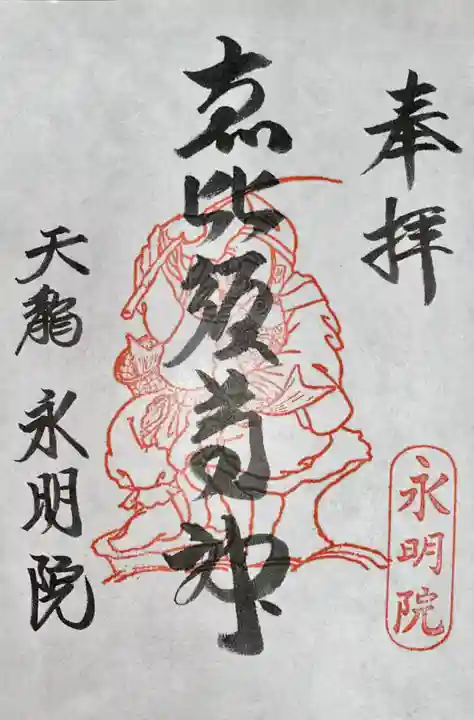 奉拝
永明院
恵比須尊神
天龍 永明院